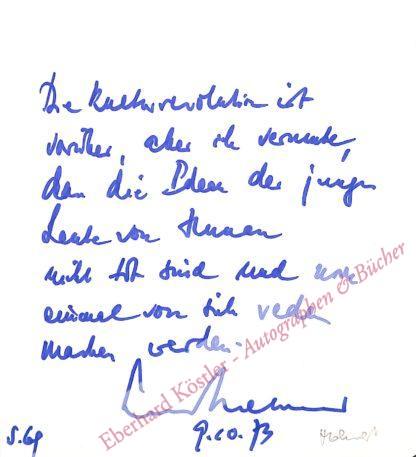 Die Kulturrevolution ist
vorüber, aber ich vermute,
dass die Ideen der jungen
Leute von Hunan
nicht tot sind und noch
einmal von sich reden
machen werden.
S. 69 9.10.73
Eberhard Köstler - Autographen & Bücher